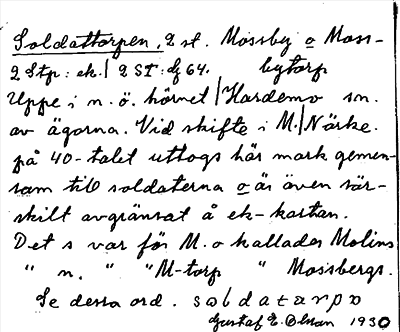 Soldattorpen, 2 st. Mossby o Moss-
2 Stp: ek. | 2 ST: dg 64. bytorp
Uppe i n.ö. hörnet | Hardemo sn.
av ägorna. Vid skifte i M. | Närke.
på 40-talet uttogs här mark gemen-
sam till soldaterna o är även sär-
skilt avgränsat å ek-kartan.
Det s var för M. o kallades Molins
" n. " " M-torp " Mossbergs.
Se dessa ord. soldatarpo
Gustaf E. Olsson 1930